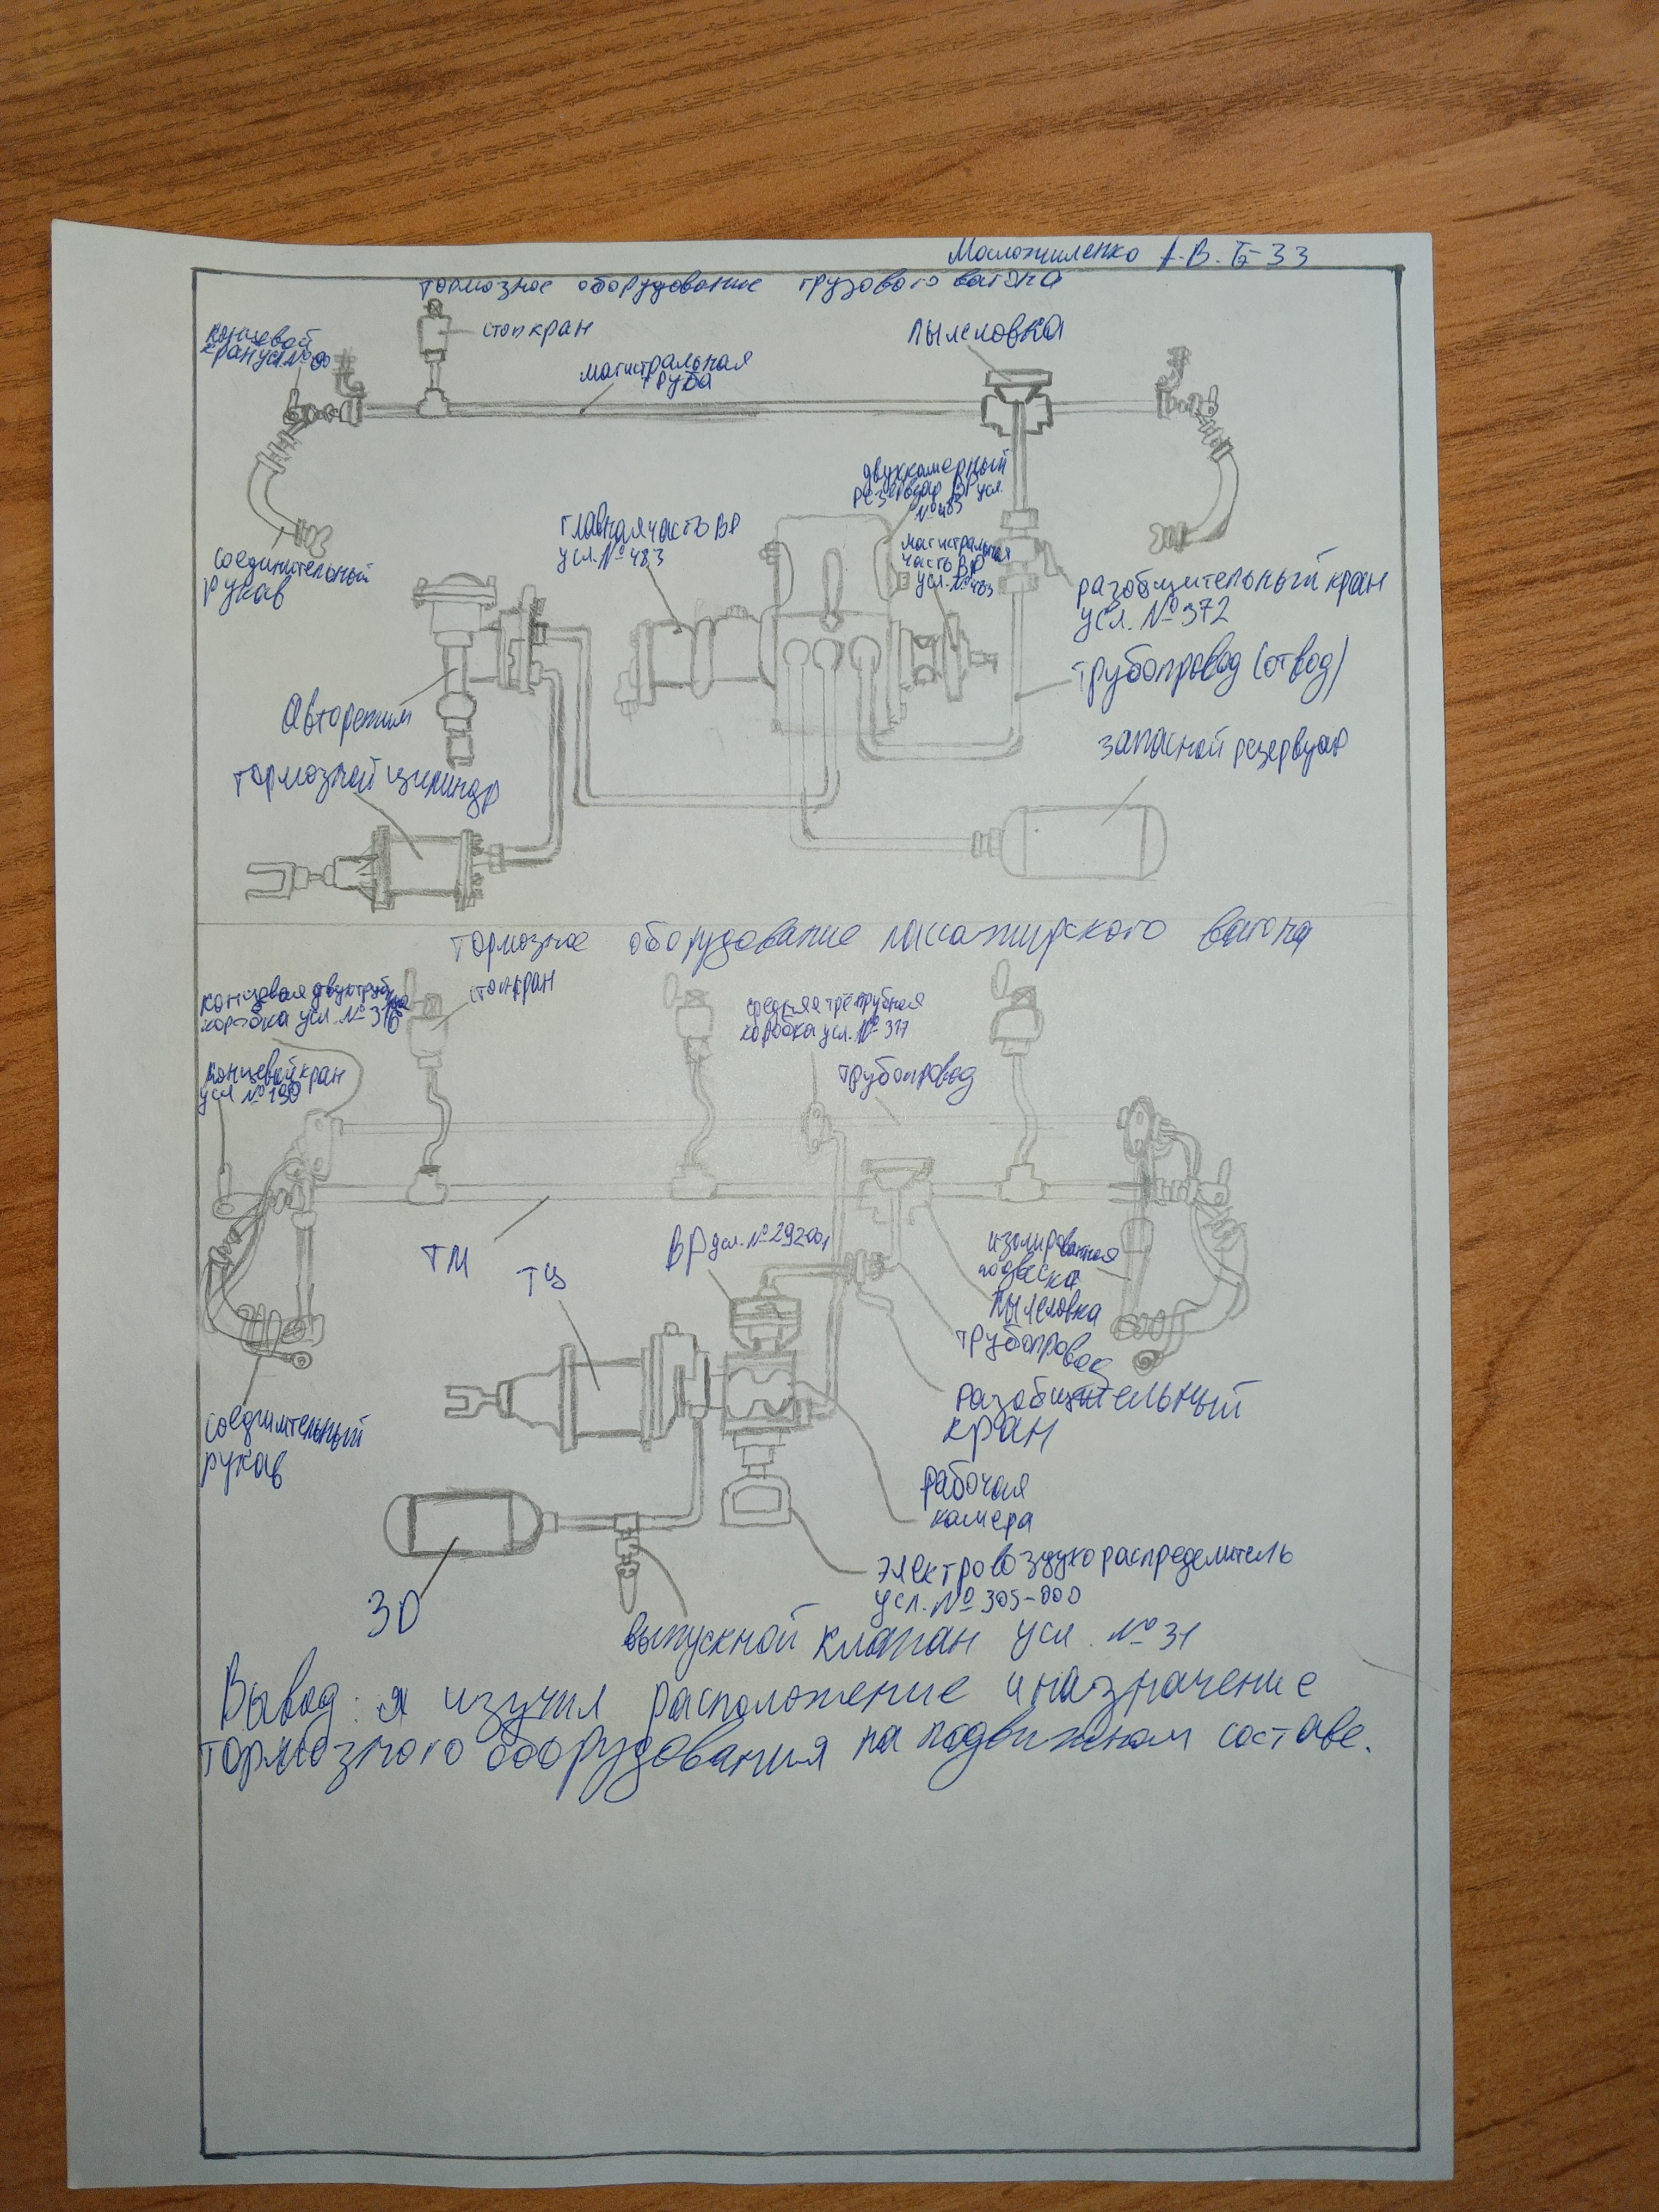 А.В. Тэ-33
тормозное оборудование грузового вагона
концевой
кран усл. №
стопкран
магистральная
труба
пылеловка
двухкамерный
резервуар ВР усл.
№483
главная часть ВР
усл. №483
магистральная
часть ВР
усл. №483
соединительный
рукав
разобщительный кран
усл. №372
трубопровод (отвод)
Авторежим
запасной резервуар
тормозной цилиндр
тормозное оборудование пассажирского вагона
концевая двухтрубная
коробка усл. №316
стопкран
средняя трёхтрубная
коробка усл. №317
концевой кран
усл №190
трубопровод
ТМ
ТЦ
ВР усл. №292001
изолированная
подвеска
пылеловка
трубопровод
разобщительный
кран
соединительный
рукав
рабочая
камера
электровоздухораспределитель
усл. №305-000
ЗР
выпускной клапан усл. №31
Вывод: я изучил расположение и назначение
тормозного оборудования на подвижном составе.